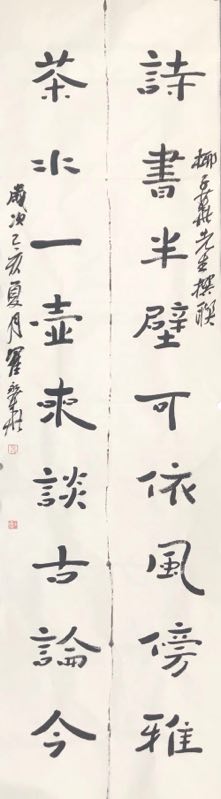 先生撰聯
詩書半壁可依風傍雅
茶水一壺來談古論今
歲次己亥夏月